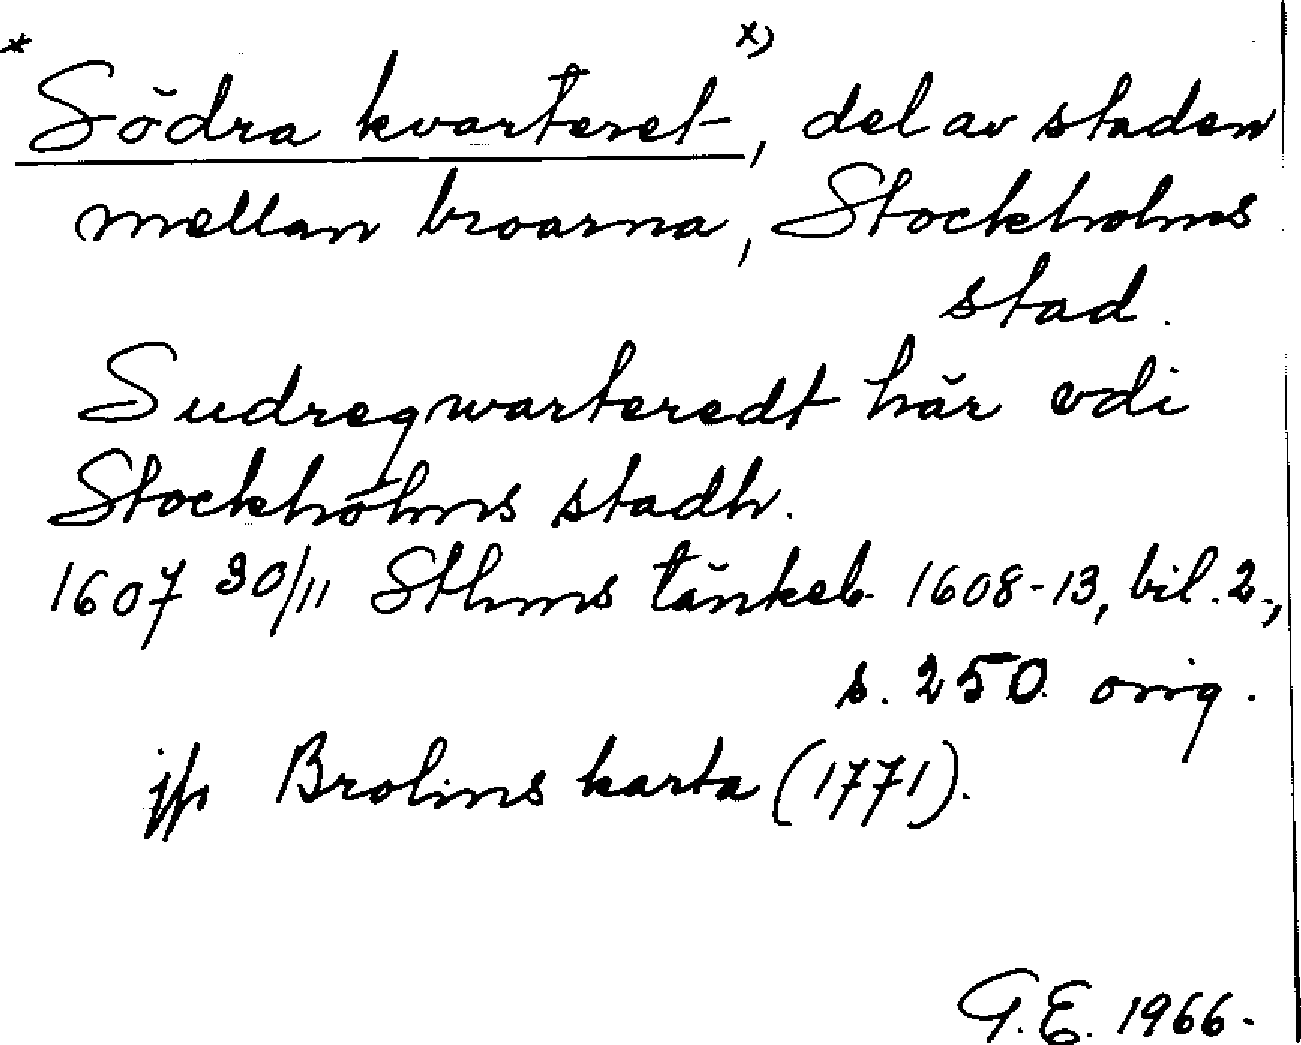 * Södra kvarteret x), del av staden
mellan broarna, Stockholms
stad.
Sudreqwarteredt här vdi
Stockholms stadh.
1607 30/11 Sthms tänkeb. 1608-13, bil. 2,
s. 250 orig.
jfr Brolins karta (1771).
G.E. 1966.